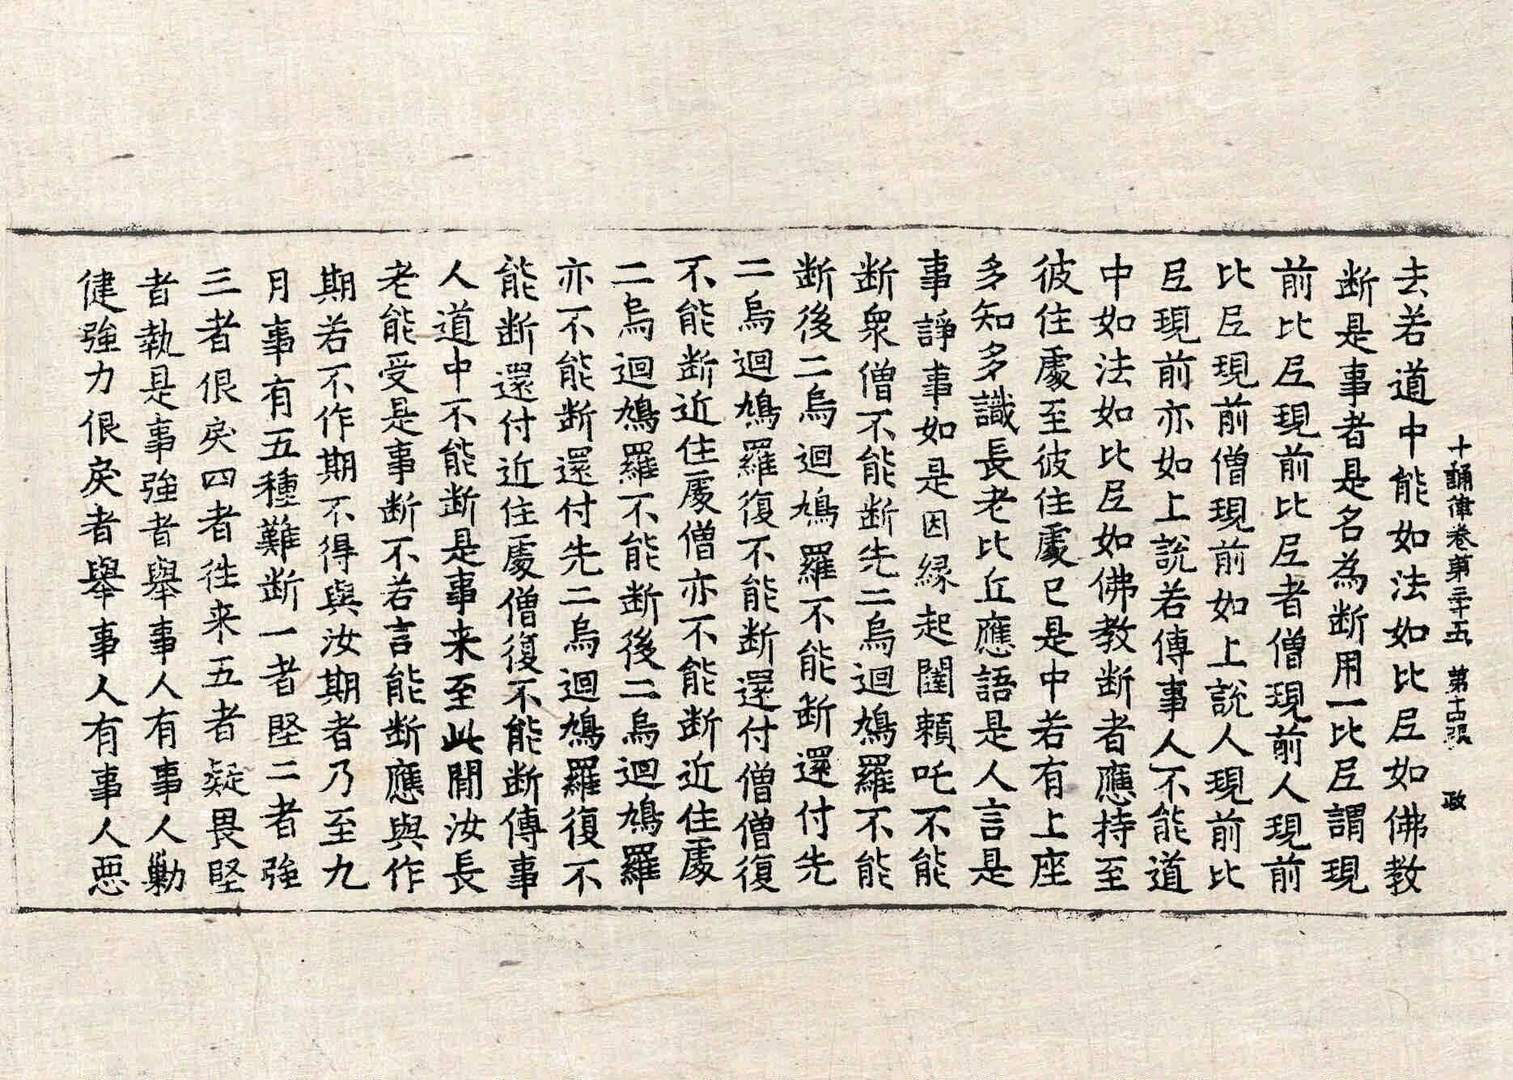 十誦律卷第三十五 第十四張 政
去若道中能如法如比尼如佛教
断是事者是名為断用一比尼謂現
前比尼現前比尼者僧現前人現前
比尼現前僧現前如上說人現前比
尼現前亦如上說若傳事人不能道
中如法如比尼如佛教断者應持至
彼住處至彼住處已是中若有上座
多知多識長老比丘應語是人言是
事諍事如是因緣起闥賴吒不能
断衆僧不能断先二烏迴鳩羅不能
断後二烏迴鳩羅不能断還付先
二烏迴鳩羅復不能断還付僧僧復
不能断近住處僧亦不能断近住處
二烏迴鳩羅不能断後二烏迴鳩羅
亦不能断還付先二烏迴鳩羅復不
能断還付近住處僧復不能断傳事
人道中不能断是事来至此間汝長
老能受是事断不若言能断應與作
期若不作期不得與汝期者乃至九
月事有五種難断一者堅二者強
三者佷戾四者往来五者疑畏堅
者執是事強者舉事人有事人勦
健強力佷戾者舉事人有事人惡